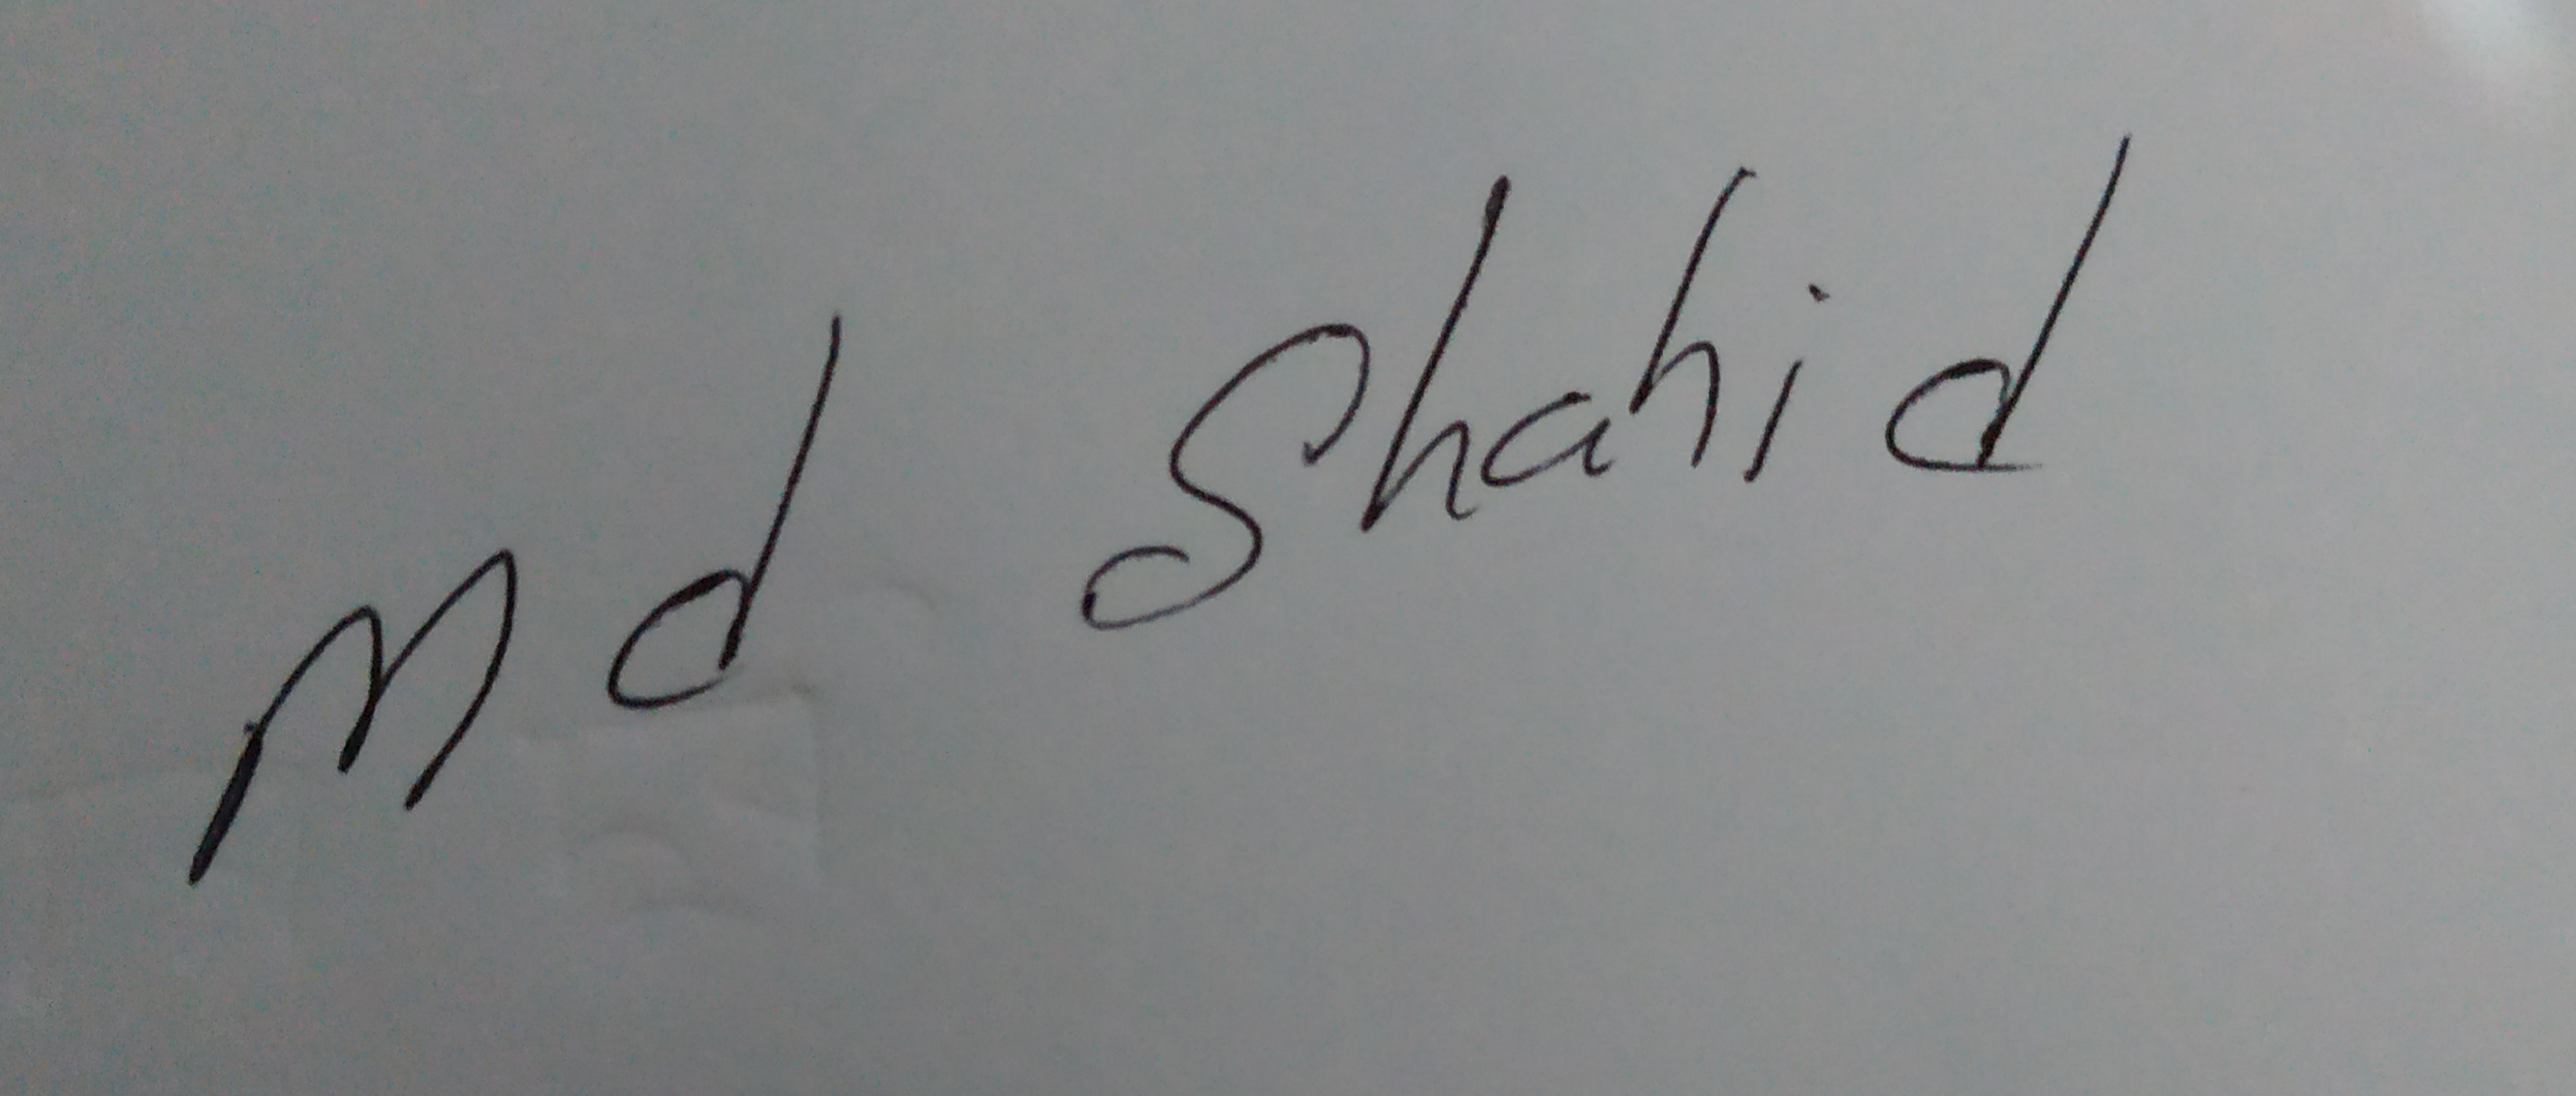 Md Shahid